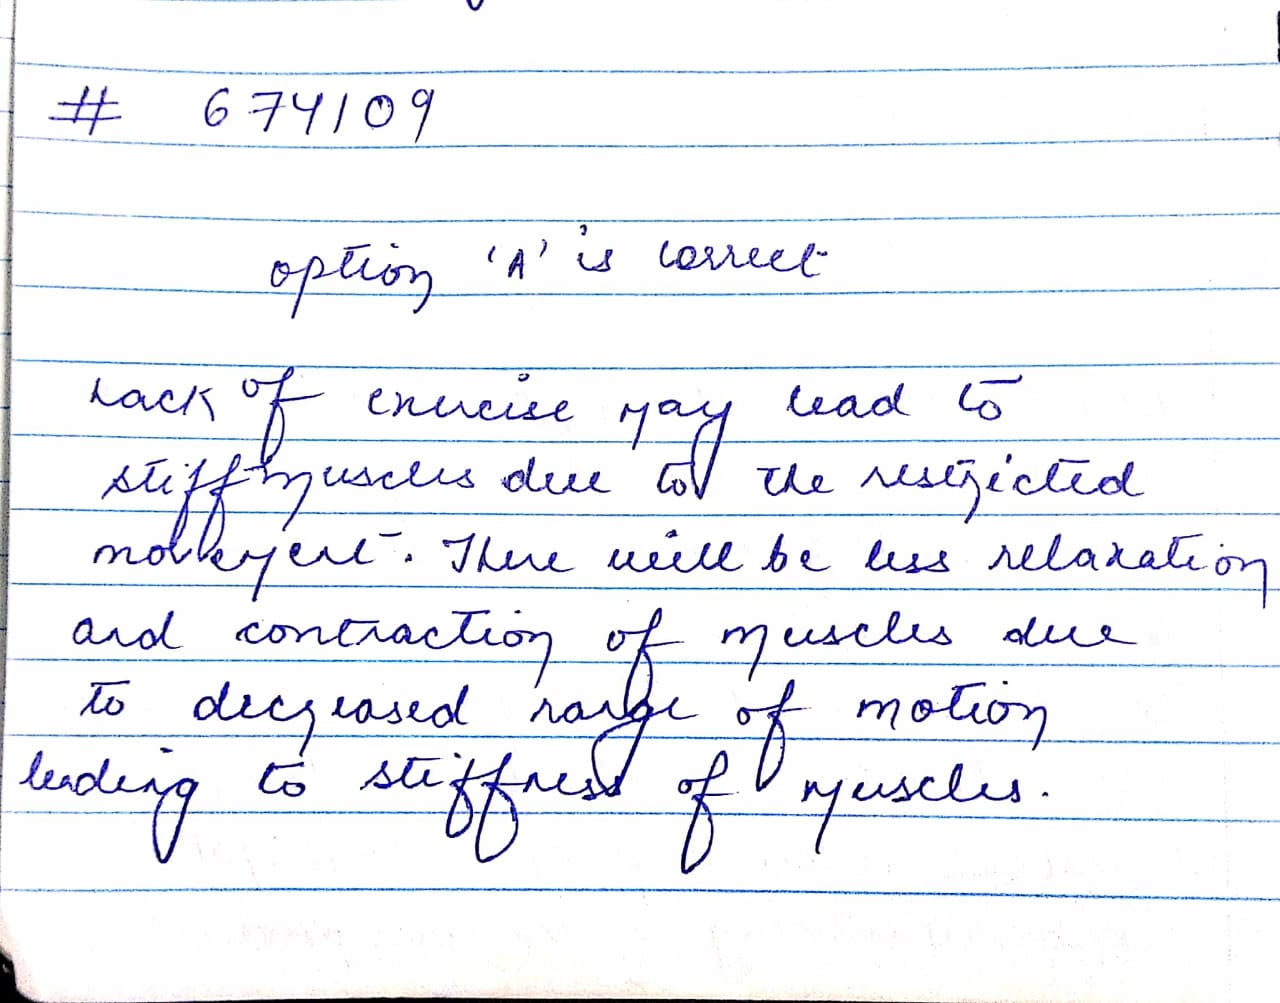 # 674109
option 'A' is correct
Lack of exercise may lead to
stiff muscles due to the restricted
movement. There will be less relaxation
and contraction of muscles due
to decreased range of motion
leading to stiffness of muscles.